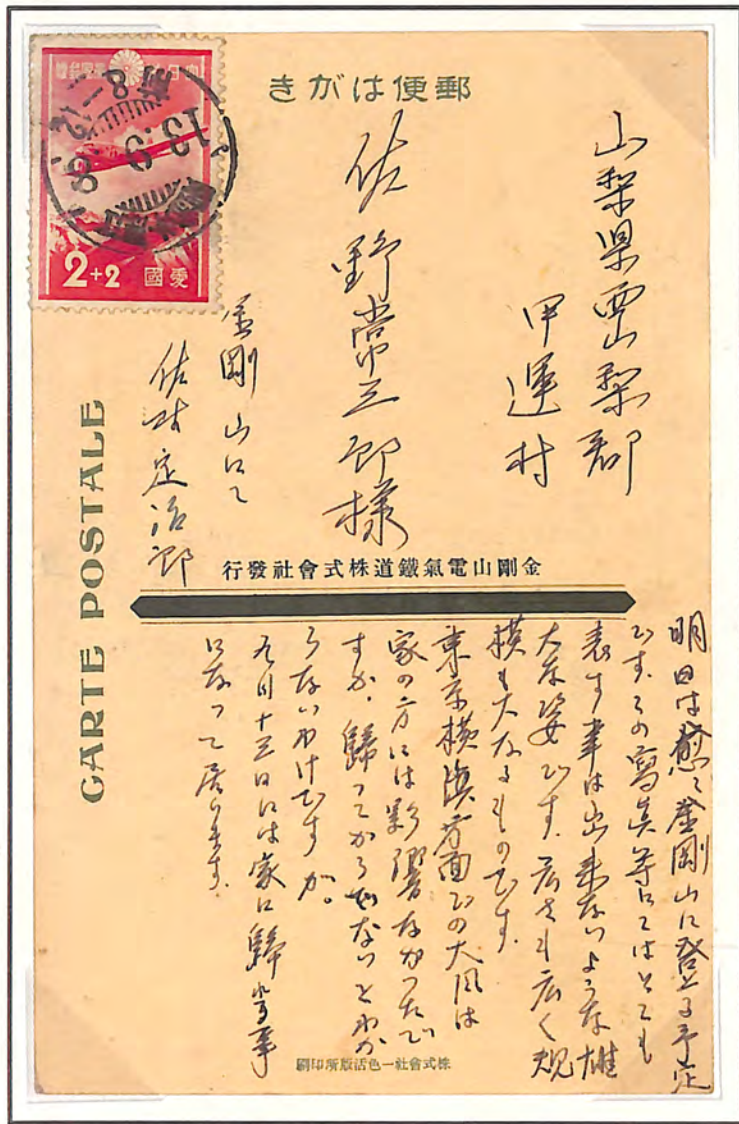 郵便はがき
大日本帝國郵便
愛國
2+2
13.9.8
8-12
山梨県西山梨郡
甲運村
佐野常三郎様
金剛山にて
佐野定治郎
CARTE POSTALE
金剛山電氣鐵道株式會社發行
明日は愈々金剛山に登る予定
です。この寫真等にてはとても
表す事は出来ないような雄
大な姿です。広さも広く規
模も大なるものです。
東京横濱方面での大風は
家の方には影響なかったで
すか。歸ってからでないとわか
らないわけですが。
九月十三日には家に歸る事
になって居ります。
株式會社一色活版所印刷